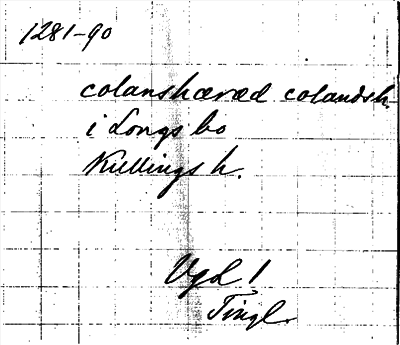 1281-90
colanshæræd colandsh.
i Longs bo
Kullings h.
Vgl 1
Tingl.